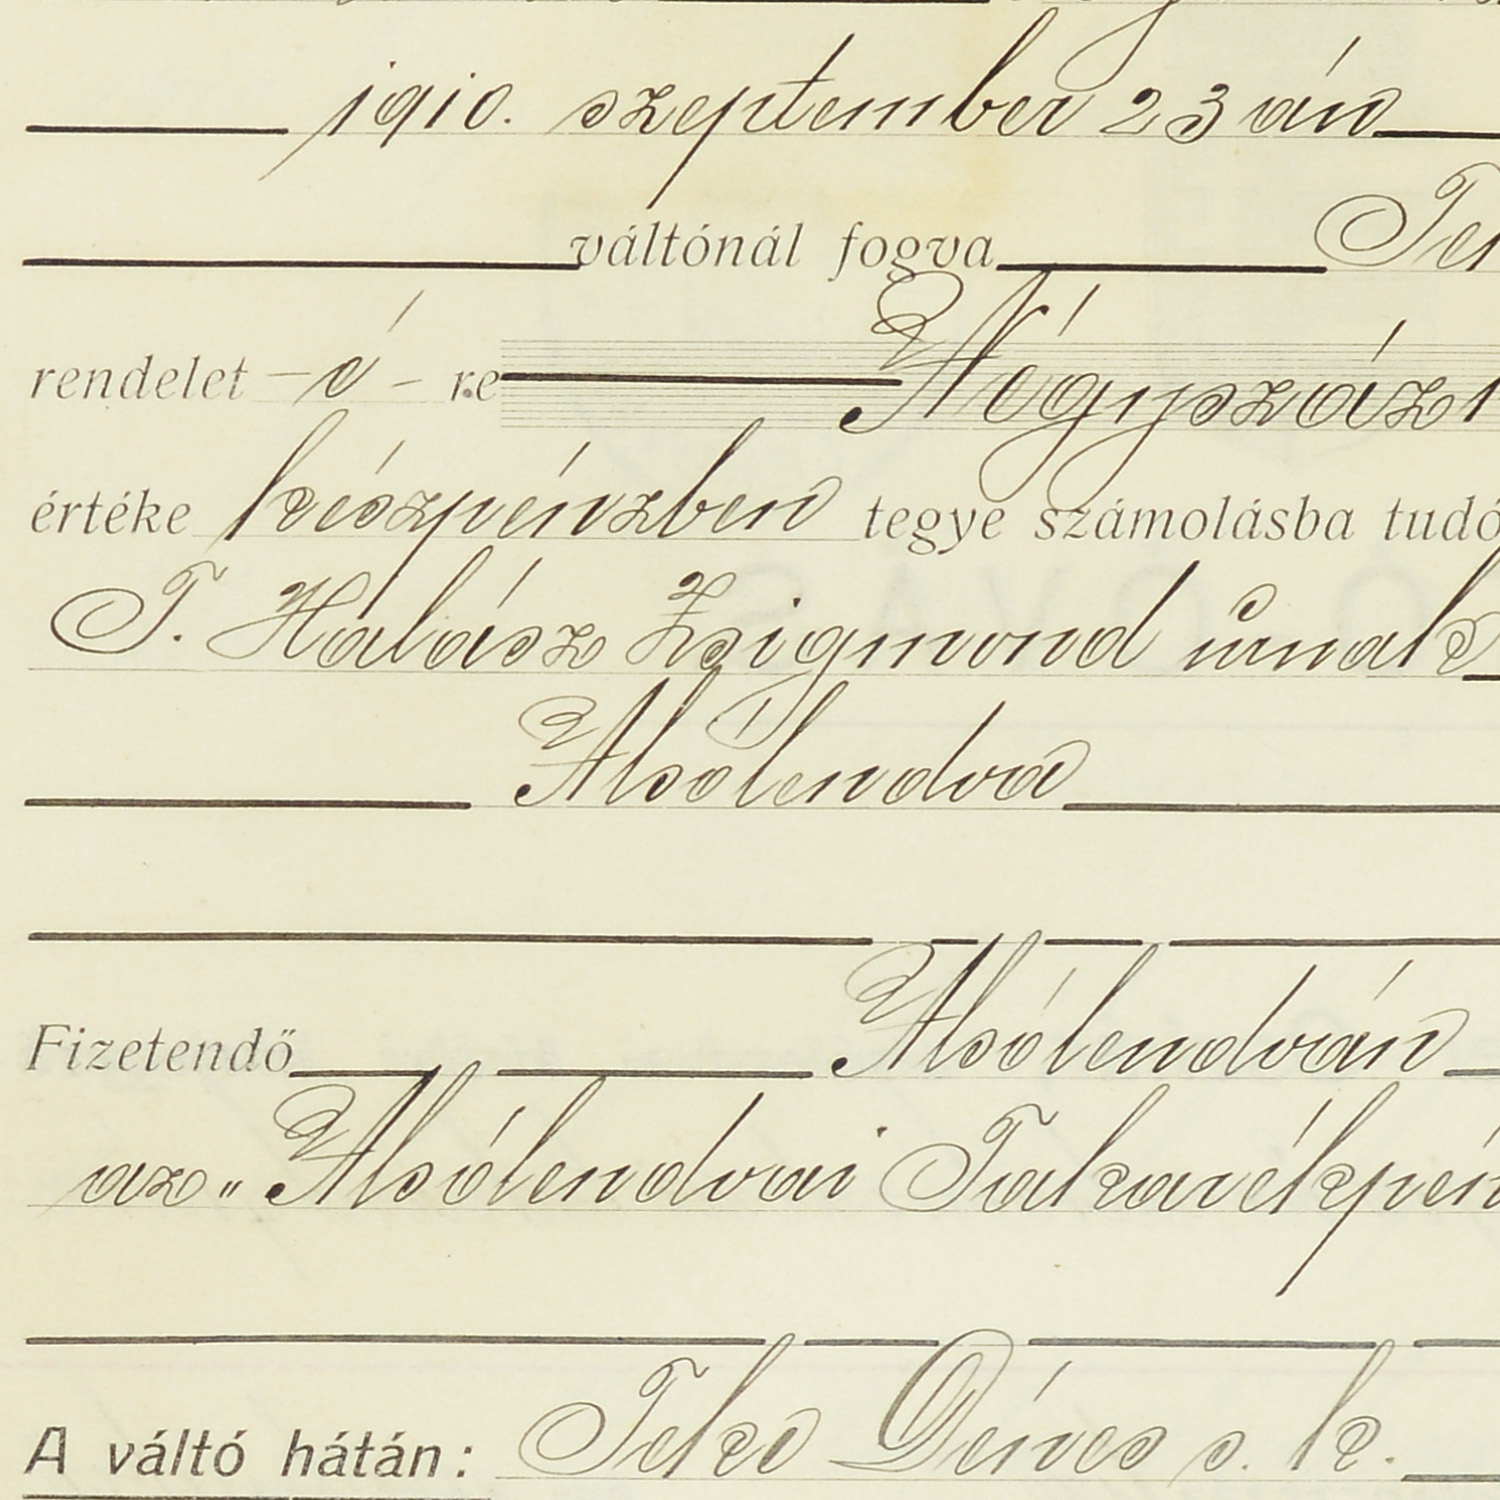 1910. szeptember 23 án
váltónál fogva
rendelet – é – re Négyszáz
értéke készpénzben tegye számolásba tudó
T. Halász Zsigmond úrnak
Alsólendva
Fizetendő Alsólendván
az „ Alsólendvai Takarékpén
A váltó hátán: Teke Dénes s. k.